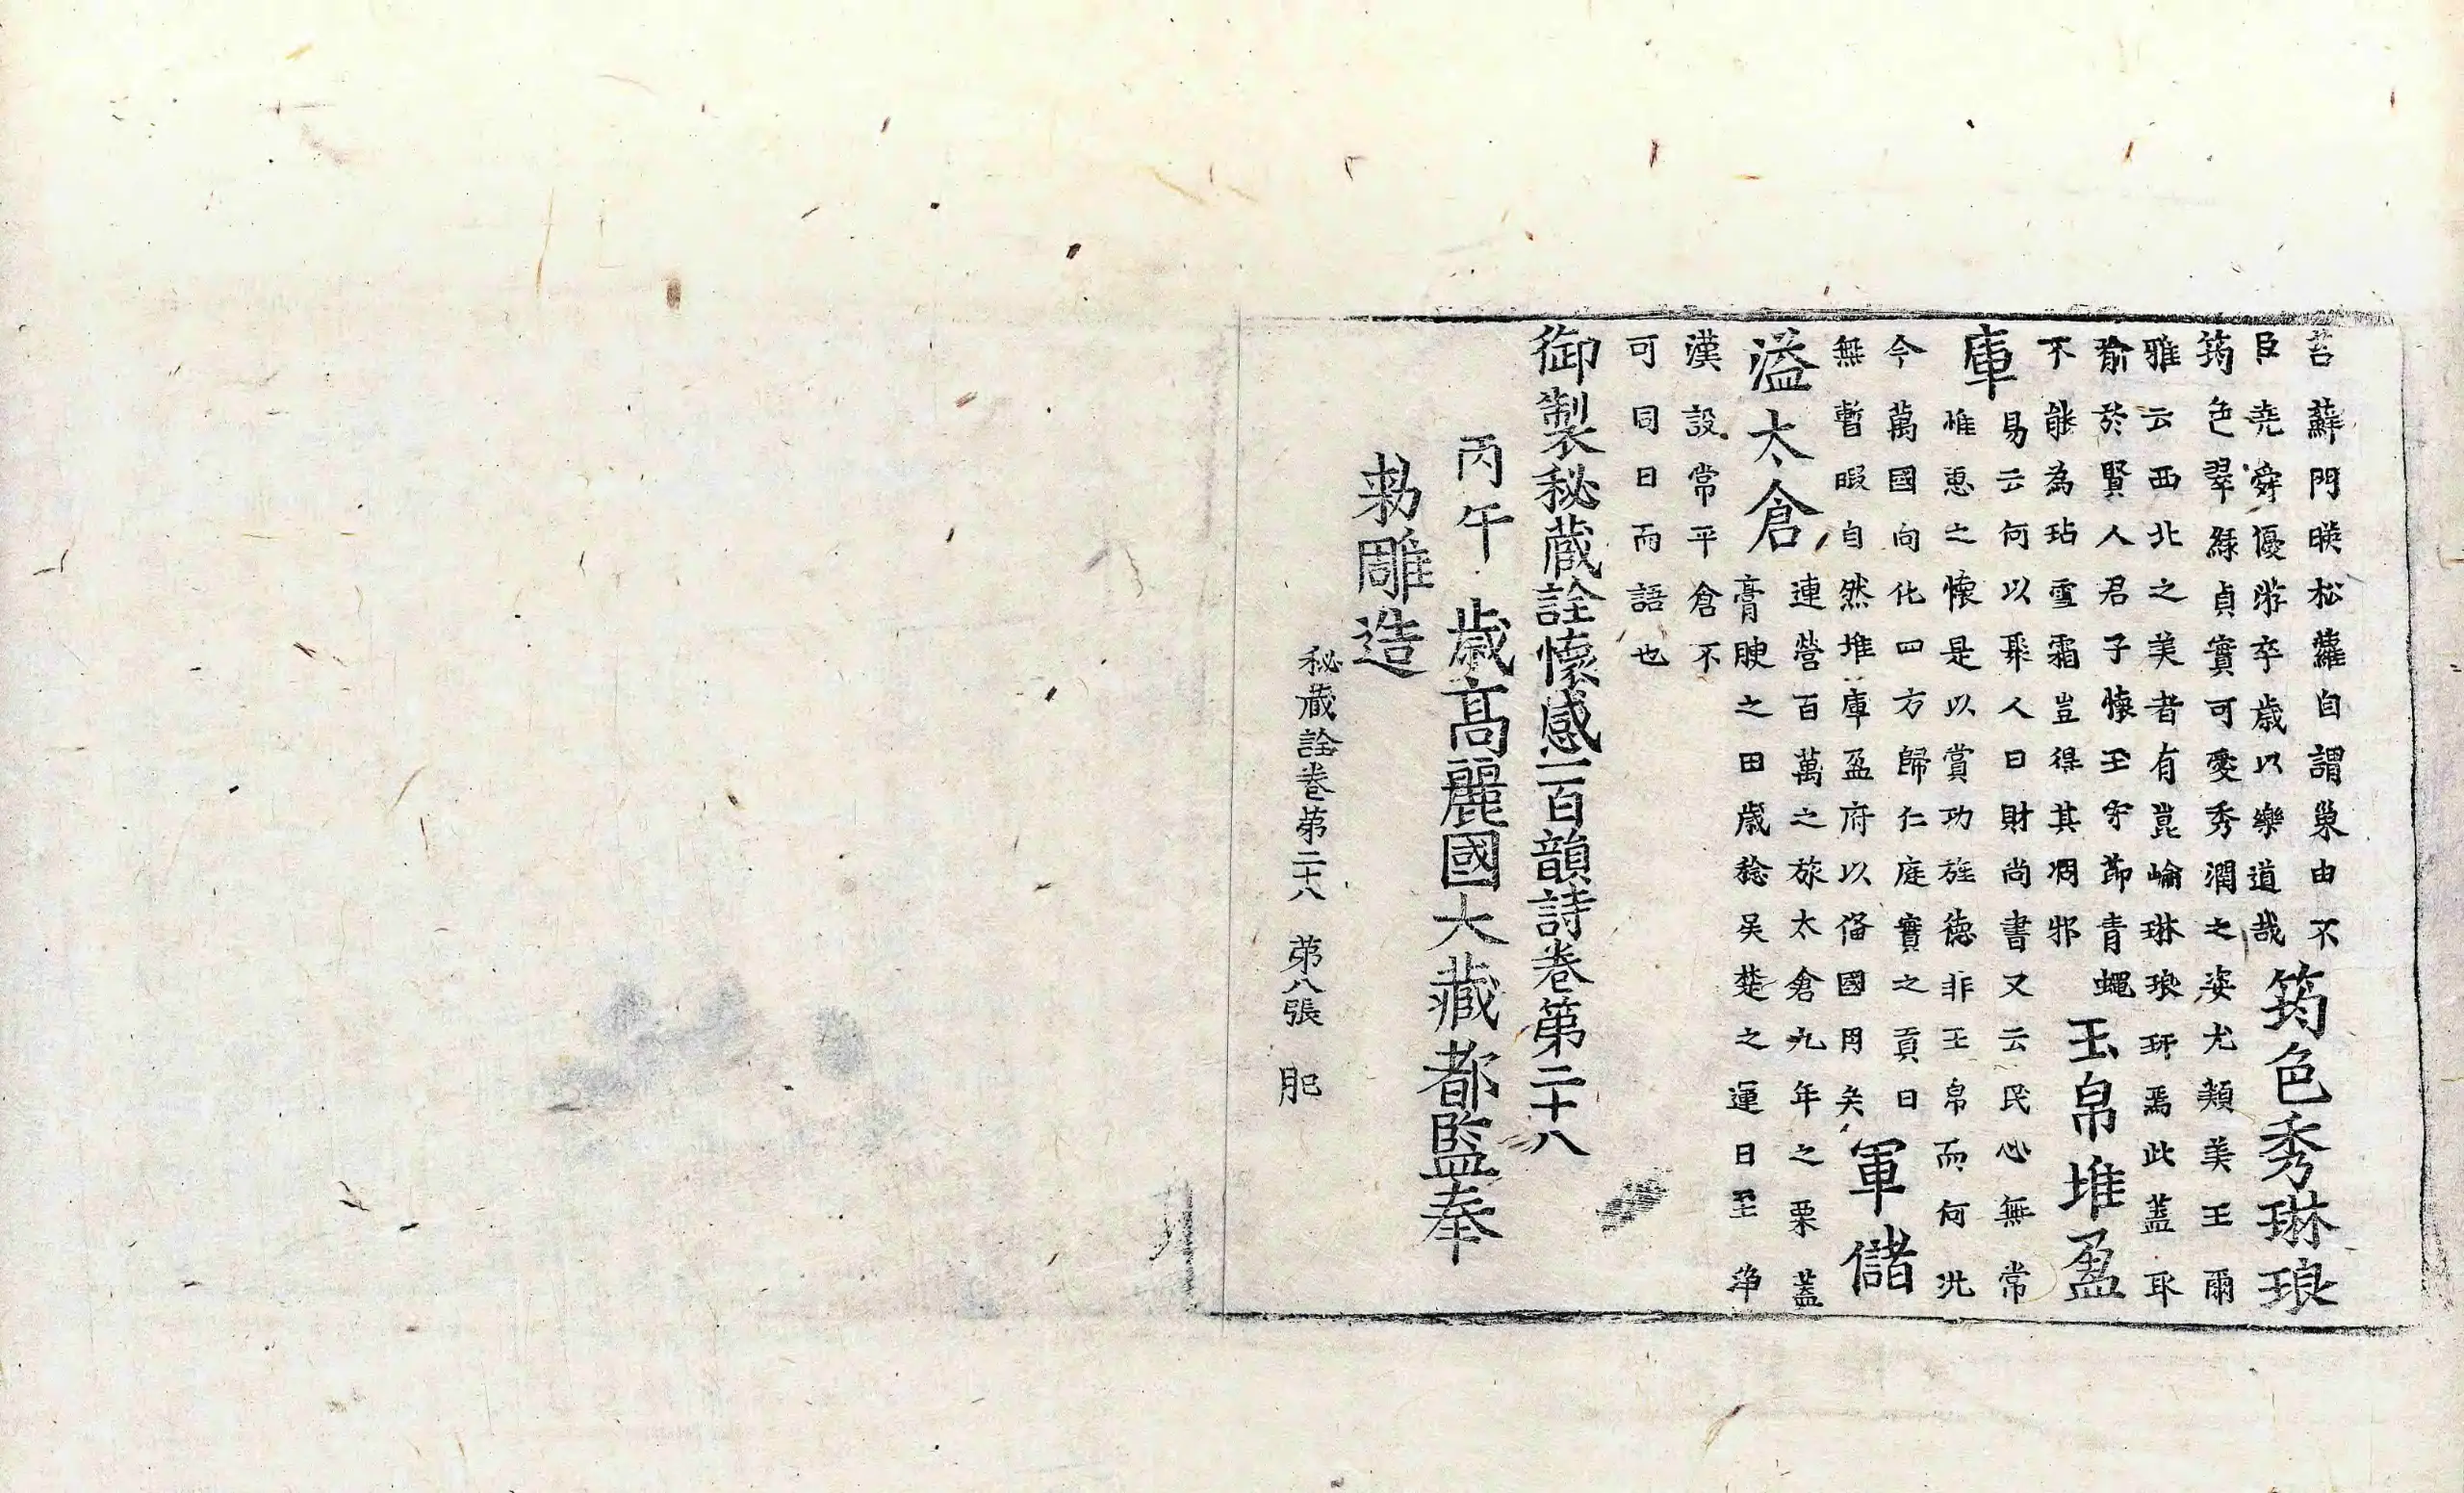 苔蘚門暎松蘿自謂巢由不
臣堯舜優游卒歲以樂道哉
筠色秀琳琅
筠色翠綠貞實可愛秀潤之姿尤類美玉爾
雅云西北之美者有崑崙琳琅玕焉此蓋取
喻於賢人君子懷玉守節青蠅
不能為玷雪霜豈得其凋邪
玉帛堆盈
庫
易云何以聚人曰財尚書又云民心無常
惟惠之懷是以賞功旌德非玉帛而何況
今萬國向化四方歸仁庭實之貢日
無暫暇自然堆庫盈府以俻國用矣
軍儲
溢太倉
連營百萬之旅太倉九年之粟蓋
膏腴之田歲稔吳楚之運日至
漢設常平倉不
可同日而語也
御製秘藏詮懷感一百韻詩卷第二十八
丙午歲高麗國大藏都監奉
勑雕造
秘藏詮卷第二十八 第八張 肥